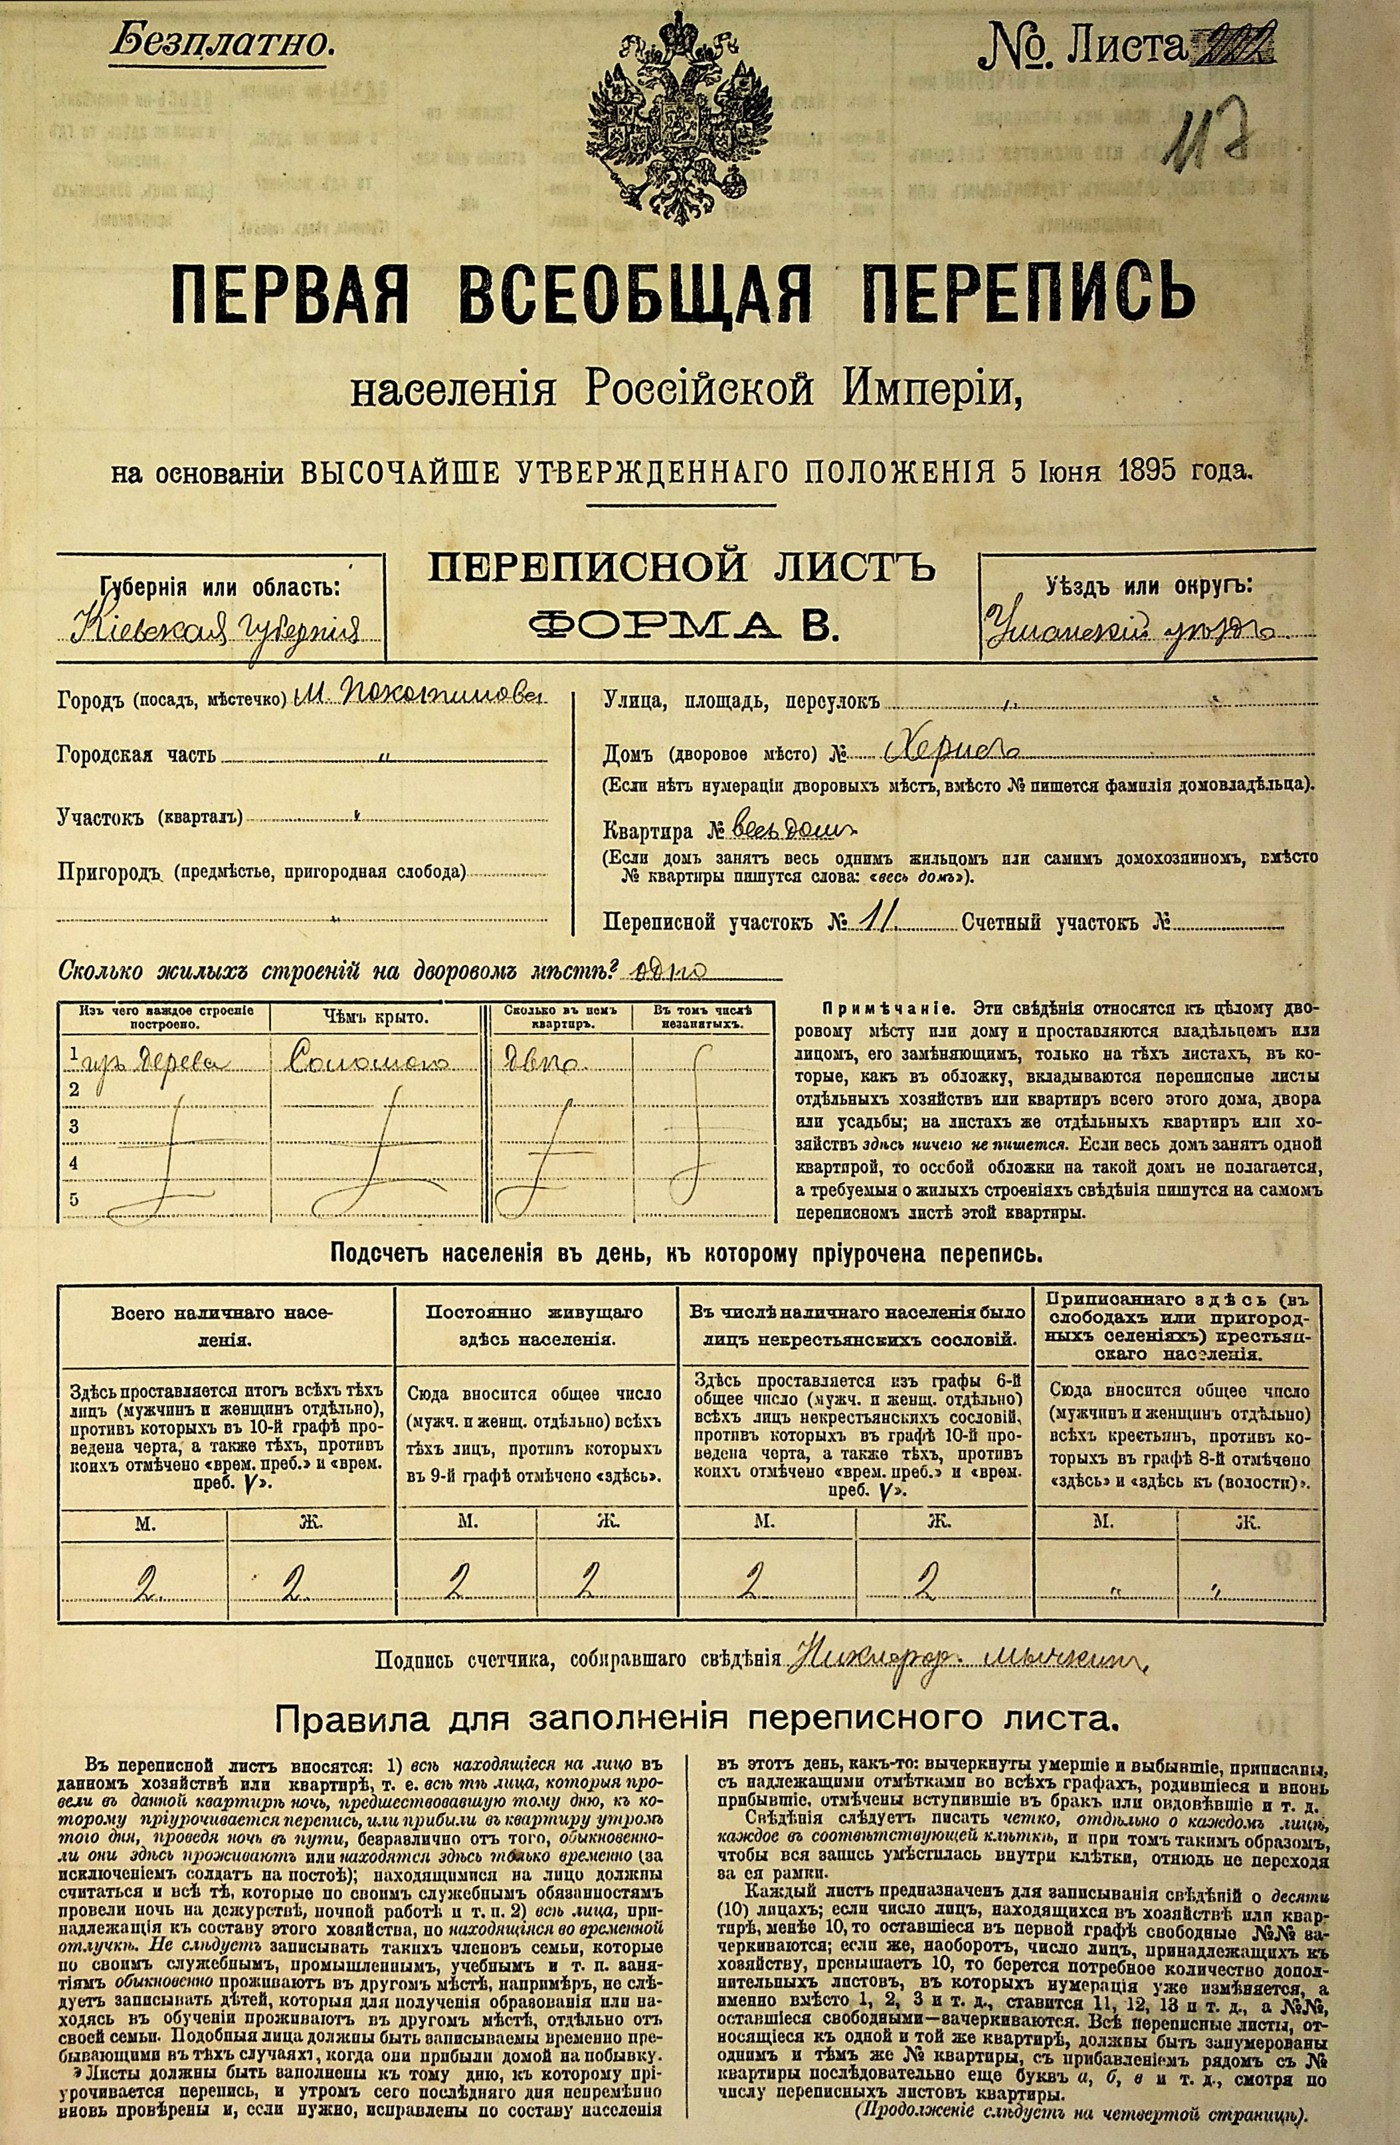 Безплатно.
№. Листа 202
117
ПЕРВАЯ ВСЕОБЩАЯ ПЕРЕПИСЬ
населенія Россійской Имперіи,
на основаніи ВЫСОЧАЙШЕ УТВЕРЖДЕННАГО ПОЛОЖЕНІЯ 5 Іюня 1895 года.
ПЕРЕПИСНОЙ ЛИСТЪ
ФОРМА В.
Губернія или область:
Кіевская губернія
Уѣздъ или округъ:
Уманскій уѣздъ
Городъ (посадъ, мѣстечко) М. Покотилово
Городская часть "
Участокъ (кварталъ) "
Пригородъ (предмѣстье, пригородная слобода)
"
Улица, площадь, персулокъ "
Домъ (дворовое мѣсто) №
(Если нѣтъ нумераціи дворовыхъ мѣстъ, вмѣсто № пишется фамилія домовладѣльца).
Квартира № весь домъ
(Если домъ занятъ весь однимъ жильцомъ или самимъ домохозяиномъ, вмѣсто
№ квартиры пишутся слова: «весь домъ»).
Переписной участокъ № 11. Счетный участокъ №
Сколько жилыхъ строеній на дворовомъ мѣстѣ? одно
Изъ чего каждое строеніе
построено.
Чѣмъ крыто.
Сколько въ немъ
квартиръ.
Въ томъ числѣ
незанятыхъ.
1 изъ дерева Соломою Двѣ
2
3
4
5
Примѣчаніе. Эти свѣдѣнія относятся къ цѣлому дво-
ровому мѣсту или дому и проставляются владѣльцемъ или
лицомъ, его замѣняющимъ, только на тѣхъ листахъ, въ ко-
торые, какъ въ обложку, вкладываются переписные листы
отдѣльныхъ хозяйствъ или квартиръ всего этого дома, двора
или усадьбы; на листахъ же отдѣльныхъ квартиръ или хо-
зяйствъ здѣсь ничего не пишется. Если весь домъ занятъ одной
квартирой, то особой обложки на такой домъ не полагается,
а требуемыя о жилыхъ строеніяхъ свѣдѣнія пишутся на самомъ
переписномъ листѣ этой квартиры.
Подсчетъ населенія въ день, къ которому пріурочена перепись.
Всего наличнаго насе-
ленія.
Здѣсь проставляется итогъ всѣхъ тѣхъ
лицъ (мужчинъ и женщинъ отдѣльно),
противъ которыхъ въ 10-й графѣ про-
ведена черта, а также тѣхъ, противъ
коихъ отмѣчено «врем. преб.» и «врем.
преб. V».
Постоянно живущаго
здѣсь населенія.
Сюда вносится общее число
(мужч. и женщ. отдѣльно) всѣхъ
тѣхъ лицъ, противъ которыхъ
въ 9-й графѣ отмѣчено «здѣсь».
Въ числѣ наличнаго населенія было
лицъ некрестьянскихъ сословій.
Здѣсь проставляется изъ графы 6-й
общее число (мужч. и женщ. отдѣльно)
всѣхъ лицъ некрестьянскихъ сословій,
противъ которыхъ въ графѣ 10-й про-
ведена черта, а также тѣхъ, противъ
коихъ отмѣчено «врем. преб.» и «врем.
преб. V».
Приписаннаго здѣсь (въ
слободахъ или пригород-
ныхъ селеніяхъ) крестьян-
скаго населенія.
Сюда вносится общее число
(мужчинъ и женщинъ отдѣльно)
всѣхъ крестьянъ, противъ ко-
торыхъ въ графѣ 8-й отмѣчено
«здѣсь» и «здѣсь къ (волости)».
М. Ж. М. Ж. М. Ж. М. Ж.
2 2 2 2 2 2 " "
Подпись счетчика, собиравшаго свѣдѣнія
Правила для заполненія переписного листа.
Въ переписной листъ вносятся: 1) всѣ находящіеся на лицо въ
данномъ хозяйствѣ или квартирѣ, т. е. всѣ тѣ лица, которыя про-
вели въ данной квартирѣ ночь, предшествовавшую тому дню, къ ко-
торому пріурочивается перепись, или прибыли въ квартиру утромъ
того дня, проведя ночь въ пути, безразлично отъ того, обыкновенно-
ли они здѣсь проживаютъ или находятся здѣсь только временно (за
исключеніемъ солдатъ на постоѣ); находящимися на лицо должны
считаться и всѣ тѣ, которые по своимъ служебнымъ обязанностямъ
провели ночь на дежурствѣ, ночной работѣ и т. п. 2) всѣ лица, при-
надлежащія къ составу этого хозяйства, но находящіяся во временной
отлучкѣ. Не слѣдуетъ записывать такихъ членовъ семьи, которые
по своимъ служебнымъ, промышленнымъ, учебнымъ и т. п. заня-
тіямъ обыкновенно проживаютъ въ другомъ мѣстѣ, напримѣръ, не слѣ-
дуетъ записывать дѣтей, которыя для полученія образованія или на-
ходясь въ обученіи проживаютъ въ другомъ мѣстѣ, отдѣльно отъ
своей семьи. Подобныя лица должны быть записываемы временно пре-
бывающими въ тѣхъ случаяхъ, когда они прибыли домой на побывку.
Листы должны быть заполнены къ тому дню, къ которому прі-
урочивается перепись, и утромъ сего послѣдняго дня непремѣнно
вновь провѣрены и, если нужно, исправлены по составу населенія
въ этотъ день, какъ-то: вычеркнуты умершіе и выбывшіе, приписаны,
съ надлежащими отмѣтками во всѣхъ графахъ, родившіеся и вновь
прибывшіе, отмѣчены вступившіе въ бракъ или овдовѣвшіе и т. д.
Свѣдѣнія слѣдуетъ писать четко, отдѣльно о каждомъ лицѣ,
каждое въ соотвѣтствующей клѣткѣ, и при томъ такимъ образомъ,
чтобы вся запись умѣстилась внутри клѣтки, отнюдь не переходя
за ея рамки.
Каждый листъ предназначенъ для записыванія свѣдѣній о десяти
(10) лицахъ; если число лицъ, находящихся въ хозяйствѣ или квар-
тирѣ, менѣе 10, то оставшіеся въ первой графѣ свободные №№ за-
черкиваются; если же, наоборотъ, число лицъ, принадлежащихъ къ
хозяйству, превышаетъ 10, то берется потребное количество допол-
нительныхъ листовъ, въ которыхъ нумерація уже измѣняется, а
именно вмѣсто 1, 2, 3 и т. д., ставится 11, 12, 13 и т. д., а №№,
оставшіеся свободными—зачеркиваются. Всѣ переписные листы, от-
носящіеся къ одной и той же квартирѣ, должны быть занумерованы
однимъ и тѣмъ же № квартиры, съ прибавленіемъ рядомъ съ №
квартиры послѣдовательно еще буквъ а, б, в и т. д., смотря по
числу переписныхъ листовъ квартиры.
(Продолженіе слѣдуетъ на четвертой страницѣ).